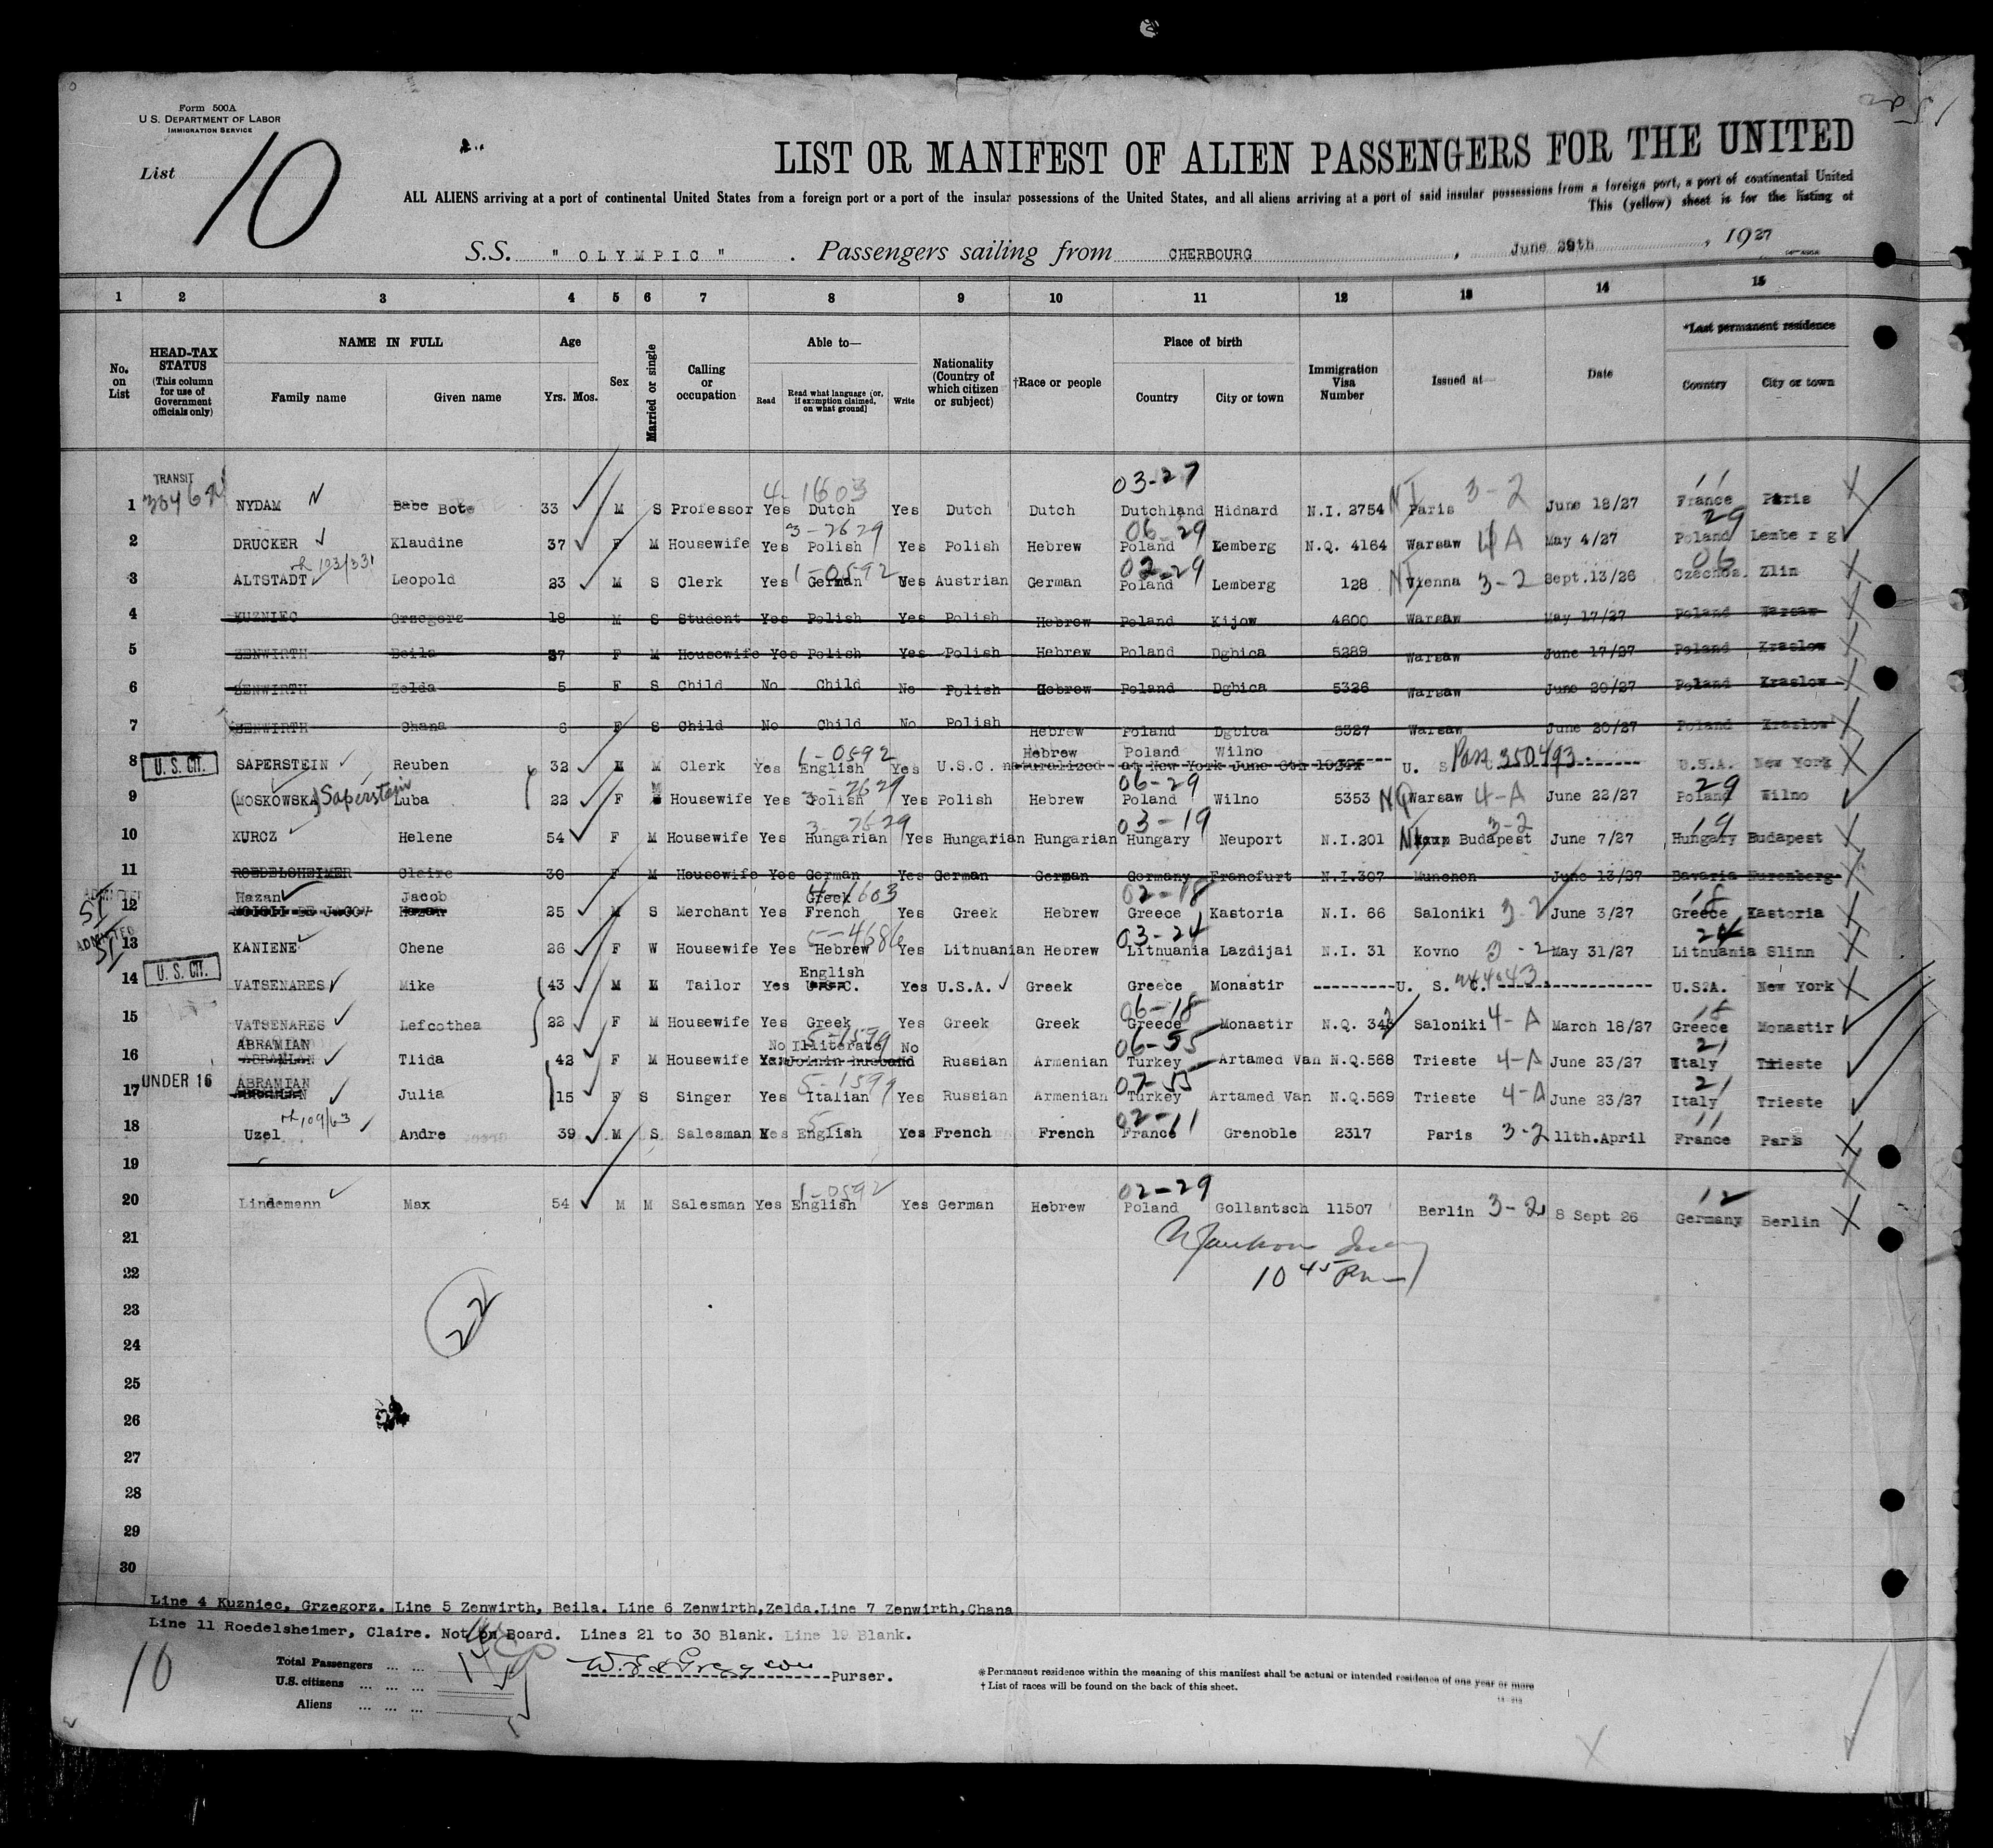 Form 500A
U. S. DEPARTMENT OF LABOR
IMMIGRATION SERVICE
List 10
LIST OR MANIFEST OF ALIEN PASSENGERS FOR THE UNITED
ALL ALIENS arriving at a port of continental United States from a foreign port or a port of the insular possessions of the United States, and all aliens arriving at a port of said insular possessions from a foreign port, a port of continental United
This (yellow) sheet is for the listing of
S.S. " OLYMPIC " . Passengers sailing from CHERBOURG , June 29th , 1927
1 2 3 4 5 6 7 8 9 10 11 12 13 14 15
No. on List
HEAD-TAX STATUS (This column for use of Government officials only)
NAME IN FULL
Family name Given name
Age
Yrs. Mos.
Sex
Married or single
Calling or occupation
Able to—
Read
Read what language [or, if exemption claimed, on what ground]
Write
Nationality (Country of which citizen or subject)
†Race or people
Place of birth
Country City or town
Immigration Visa Number
Issued at—
Date
*Last permanent residence
Country City or town
TRANSIT 4-1603 03-27 11
1 NYDAM Babe Bote 33 M S Professor Yes Dutch Yes Dutch Dutch Dutchland Hidnard N.I. 2754 NI Paris 3-2 June 18/27 France Paris
3-2629 06-29 29
2 DRUCKER Klaudine 37 F M Housewife Yes Polish Yes Polish Hebrew Poland Lemberg N.Q. 4164 Warsaw 4A May 4/27 Poland Lemberg
1-0592 02-29 06
3 ALTSTADT Leopold 23 M S Clerk Yes German Yes Austrian German Poland Lemberg 128 NI Vienna 3-2 Sept.13/26 Czechos. Zlin
4 KUZNIEC Grzegorz 18 M S Student Yes Polish Yes Polish Hebrew Poland Kijow 4600 Warsaw May 17/27 Poland Warsaw
5 ZENWIRTH Beila 37 F M Housewife Yes Polish Yes Polish Hebrew Poland Dgbica 5289 Warsaw June 17/27 Poland Kraslow
6 ZENWIRTH Zelda 5 F S Child No Child No Polish Hebrew Poland Dgbica 5326 Warsaw June 20/27 Poland Kraslow
7 ZENWIRTH Chana 6 F S Child No Child No Polish Hebrew Poland Dgbica 5327 Warsaw June 20/27 Poland Kraslow
1-0592 Hebrew Poland Wilno
8 U. S. CIT. SAPERSTEIN Reuben 32 M M Clerk Yes English Yes U.S.C. naturalized at New York June 6th U. S. Pass. 350493 U.S.A. New York
3-2629 06-29 29
9 (MOSKOWSKA) Saperstein Luba 22 F M Housewife Yes Polish Yes Polish Hebrew Poland Wilno 5353 NQ Warsaw 4-A June 22/27 Poland Wilno
3-2629 03-19 3-2 19
10 KURCZ Helene 54 F M Housewife Yes Hungarian Yes Hungarian Hungarian Hungary Neuport N.I.201 Budapest June 7/27 Hungary Budapest
11 ROEDELSHEIMER Claire 30 F M Housewife Yes German Yes German German Germany Francfurt N.I.307 Munchen June 13/27 Bavaria Nurenberg
ADMITTED Hazan Jacob Greek 02-18 18
12 MOISIL DE JACOV Hazan 25 M S Merchant Yes French Yes Greek Hebrew Greece Kastoria N.I. 66 Saloniki 3-2 June 3/27 Greece Kastoria
ADMITTED 5-4686 03-24 24
13 KANIENE Chene 26 F W Housewife Yes Hebrew Yes Lithuanian Hebrew Lithuania Lazdijai N.I. 31 Kovno 3-2 May 31/27 Lithuania Slinn
English
14 U. S. CIT. VATSENARES Mike 43 M M Tailor Yes U.S.C. Yes U.S.A. Greek Greece Monastir U. S. C. U.S.A. New York
06-18 18
15 VATSENARES Lefcothea 22 F M Housewife Yes Greek Yes Greek Greek Greece Monastir N.Q. 343 Saloniki 4-A March 18/27 Greece Monastir
ABRAMIAN No Illiterate No 5-1599 06-55 21
16 ABRAMIAN Tlida 42 F M Housewife Yes Joinin husband Russian Armenian Turkey Artamed Van N.Q.568 Trieste 4-A June 23/27 Italy Trieste
UNDER 16 ABRAMIAN 5-1599 07-55 21
17 Julia 15 F S Singer Yes Italian Yes Russian Armenian Turkey Artamed Van N.Q.569 Trieste 4-A June 23/27 Italy Trieste
5- 02-11 11
18 Uzel Andre 39 M S Salesman Yes English Yes French French France Grenoble 2317 Paris 3-2 11th.April France Paris
19
1-0592 02-29 12
20 Lindemann Max 54 M M Salesman Yes English Yes German Hebrew Poland Gollantsch 11507 Berlin 3-2 8 Sept 26 Germany Berlin
21
22 10 45 Pm
22
23
24
25
26
27
28
29
30
Line 4 Kuzniec, Grzegorz. Line 5 Zenwirth, Beila. Line 6 Zenwirth,Zelda.Line 7 Zenwirth,Chana
Line 11 Roedelsheimer, Claire. Not on Board. Lines 21 to 30 Blank. Line 19 Blank.
10
Total Passengers ... ...
U.S. citizens ... ... ...
Aliens ... ... ...
Purser.
*Permanent residence within the meaning of this manifest shall be actual or intended residence of one year or more
† List of races will be found on the back of this sheet.